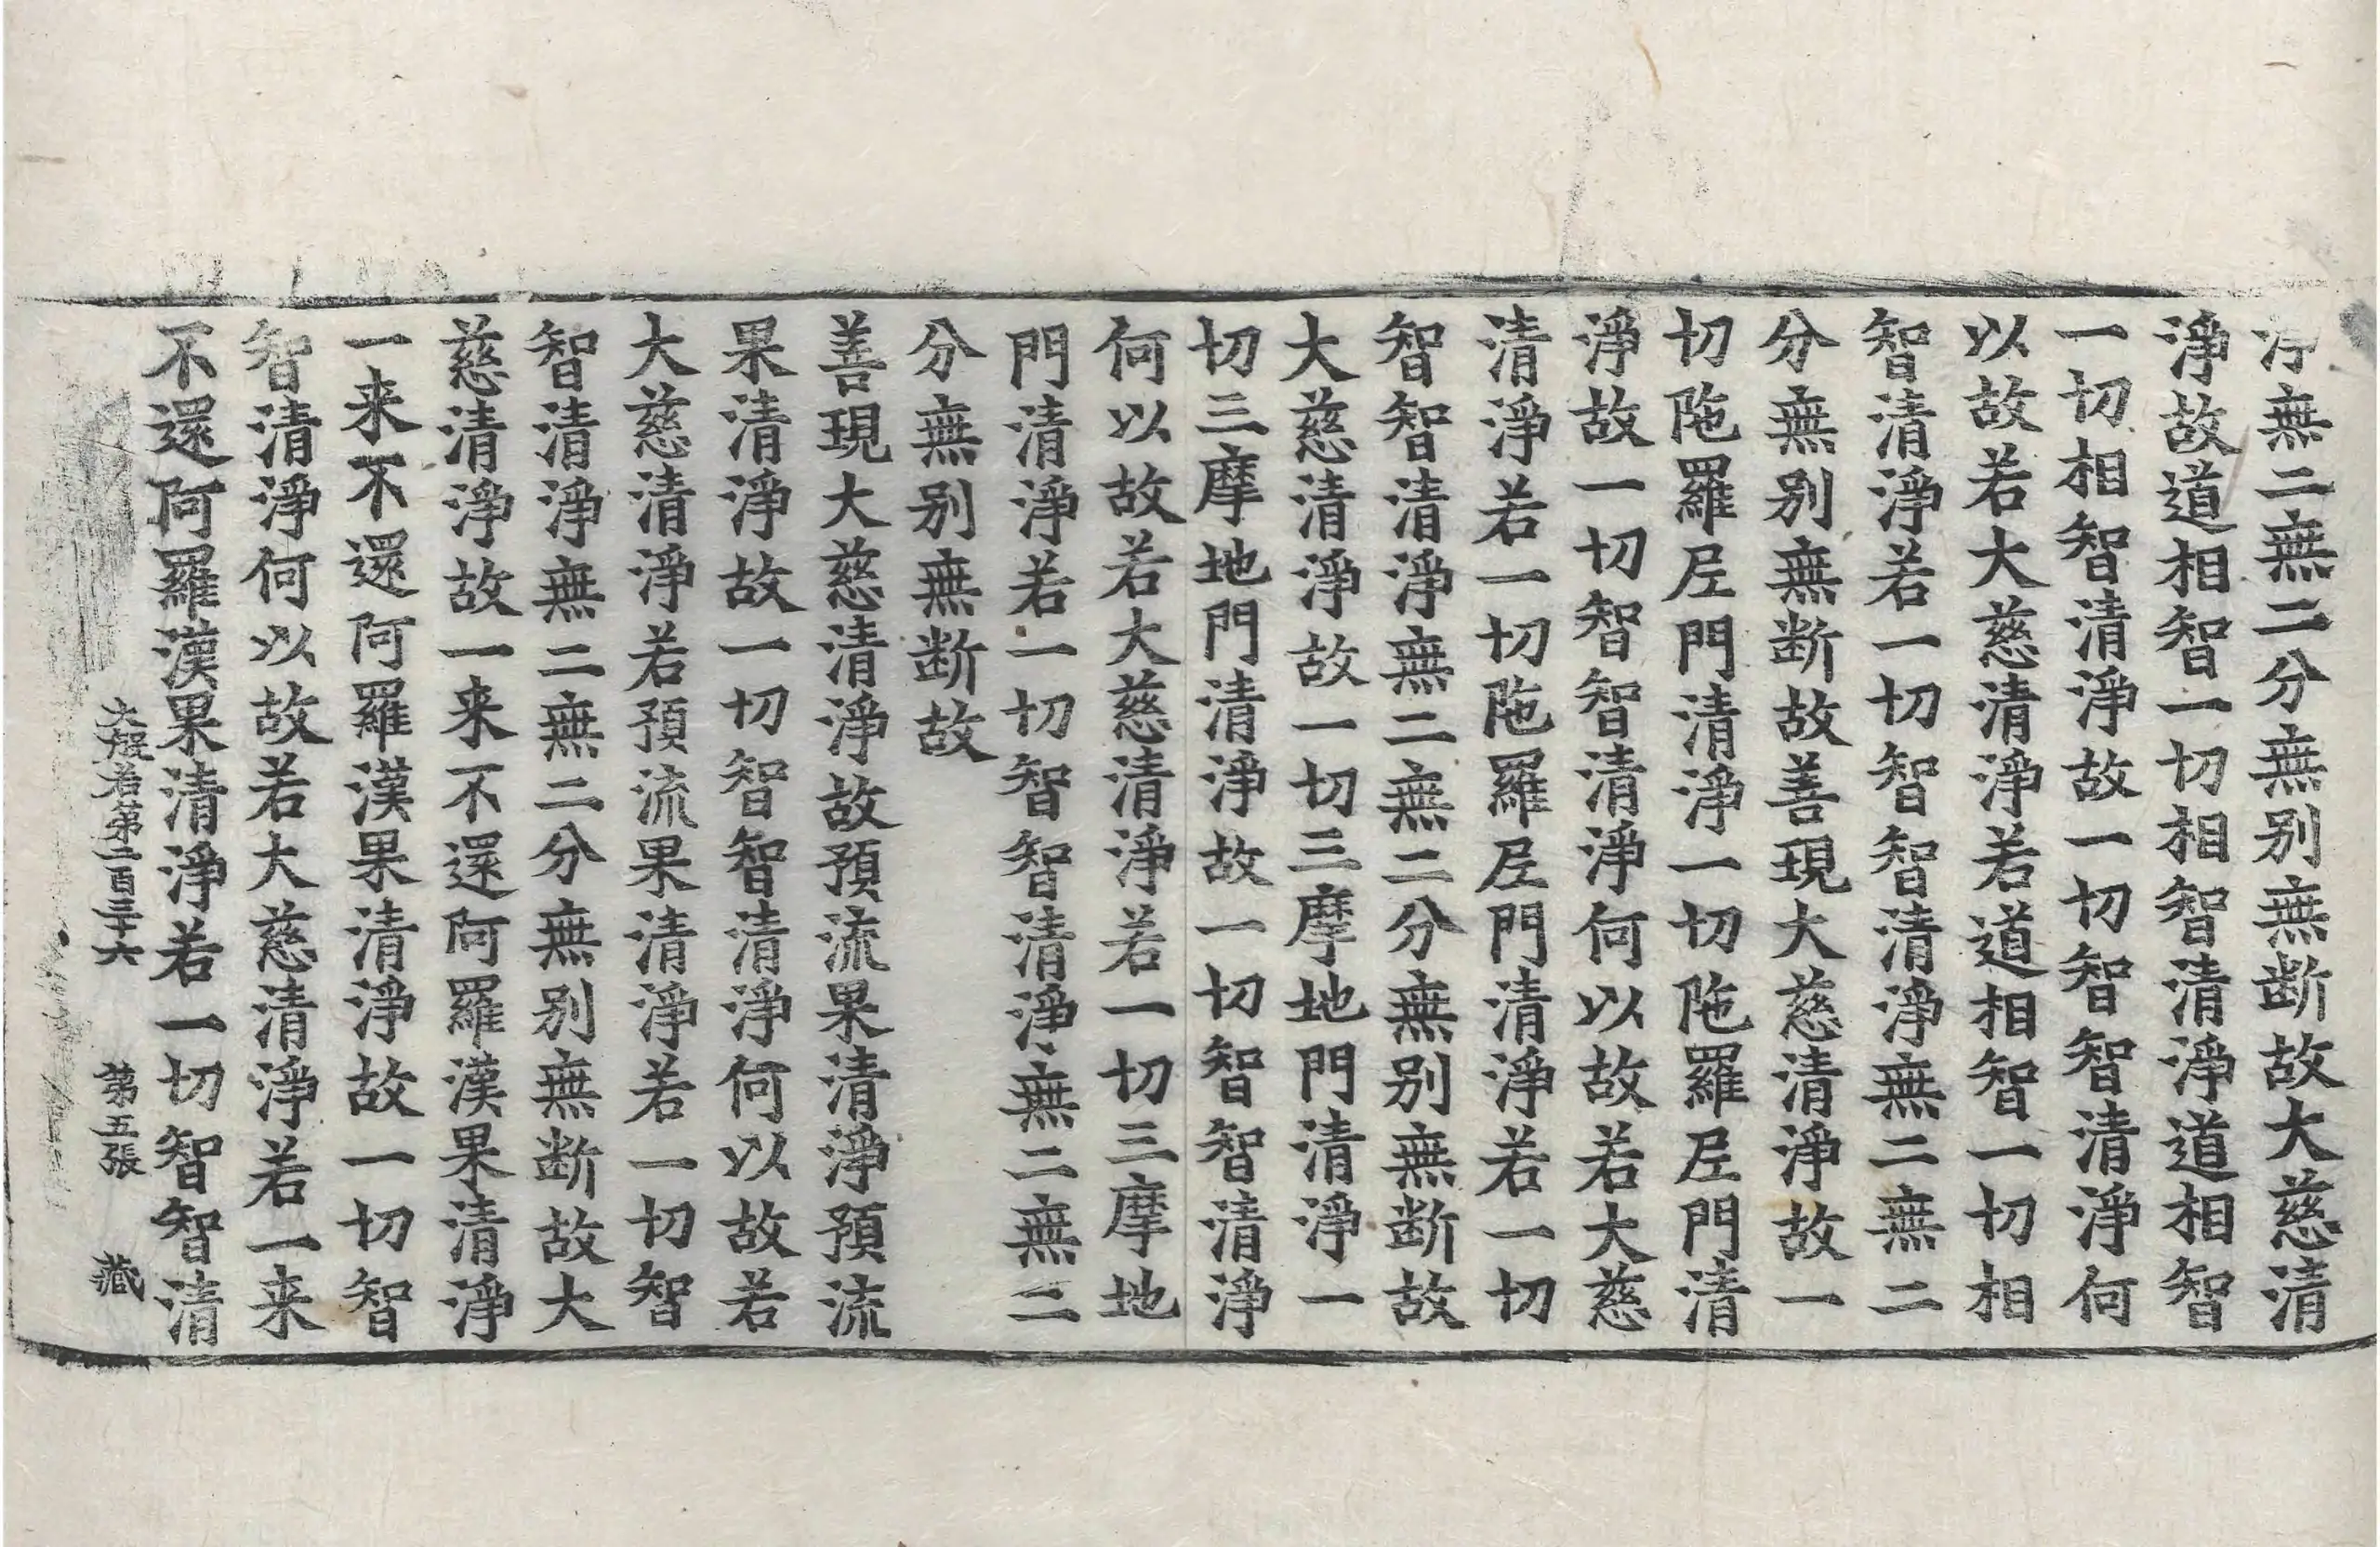 淨無二無二分無別無断故大慈清
淨故道相智一切相智清淨道相智
一切相智清淨故一切智智清淨何
以故若大慈清淨若道相智一切相
智清淨若一切智智清淨無二無二
分無別無断故善現大慈清淨故一
切陁羅尼門清淨一切陁羅尼門清
淨故一切智智清淨何以故若大慈
清淨若一切陁羅尼門清淨若一切
智智清淨無二無二分無別無断故
大慈清淨故一切三摩地門清淨一
切三摩地門清淨故一切智智清淨
何以故若大慈清淨若一切三摩地
門清淨若一切智智清淨無二無二
分無別無断故
善現大慈清淨故預流果清淨預流
果清淨故一切智智清淨何以故若
大慈清淨若預流果清淨若一切智
智清淨無二無二分無別無断故大
慈清淨故一来不還阿羅漢果清淨
一来不還阿羅漢果清淨故一切智
智清淨何以故若大慈清淨若一来
不還阿羅漢果清淨若一切智智清
大般若第二百三十六 第五張 藏